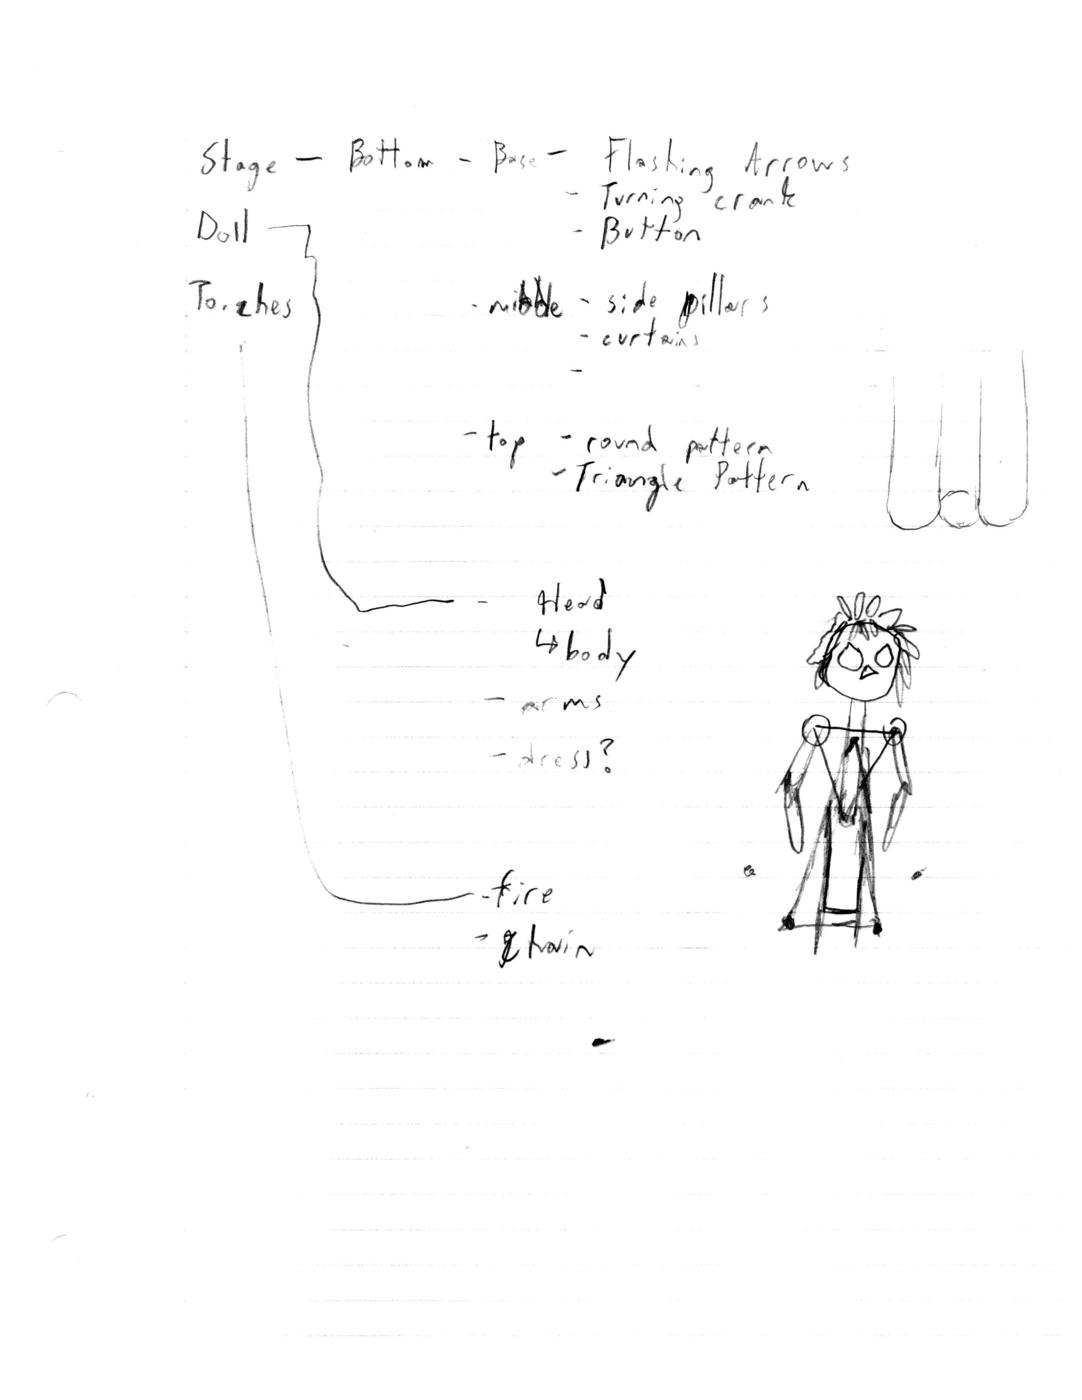 Stage - Bottom - Base - Flashing Arrows
- Turning crank
Doll - Button
Torches - middle - side pillars
- curtains
-
- top - round pattern
- Triangle Pattern
- Head
↳ body
- arms
- dress?
- fire
- chain